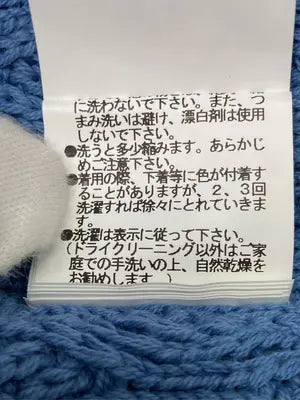 に洗わないで下さい。また、つ
まみ洗いは避け、漂白剤は使用
しないで下さい。
●洗うと多少縮みます。あらかじ
めご注意下さい。
●着用の際、下着等に色が付着す
ることがありますが、2、3回
洗濯すれば徐々にとれていきま
す。
●洗濯は表示に従って下さい。
(ドライクリーニング以外はご家
庭での手洗いの上、自然乾燥を
お勧めします。)